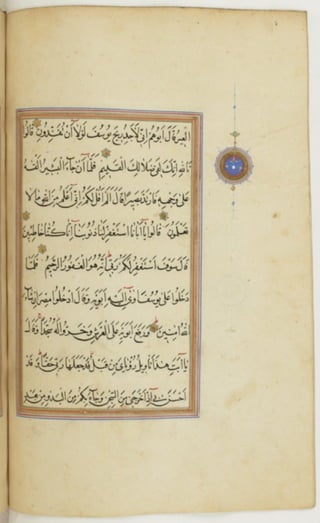 العير قال ابوهم اني لاجد ريح يوسف لولا ان تفندون قالوا
تالله انك لفي ضلالك القديم فلما ان جاء البشير القه
على وجهه فارتد بصيرا قال الم اقل لكم اني اعلم من الله ما لا
تعلمون قالوا يا ابانا استغفر لنا ذنوبنا انا كنا خاطئين
قال سوف استغفر لكم ربي انه هو الغفور الرحيم فلما
دخلوا على يوسف اوى اليه ابويه وقال ادخلوا مصر ان شاء
الله امنين ورفع ابويه على العرش وخروا له سجدا وقال
يا ابت هذا تاويل رؤياي من قبل قد جعلها ربي حقا وقد
احسن بي اذ اخرجني من السجن وجاء بكم من البدو من بعد